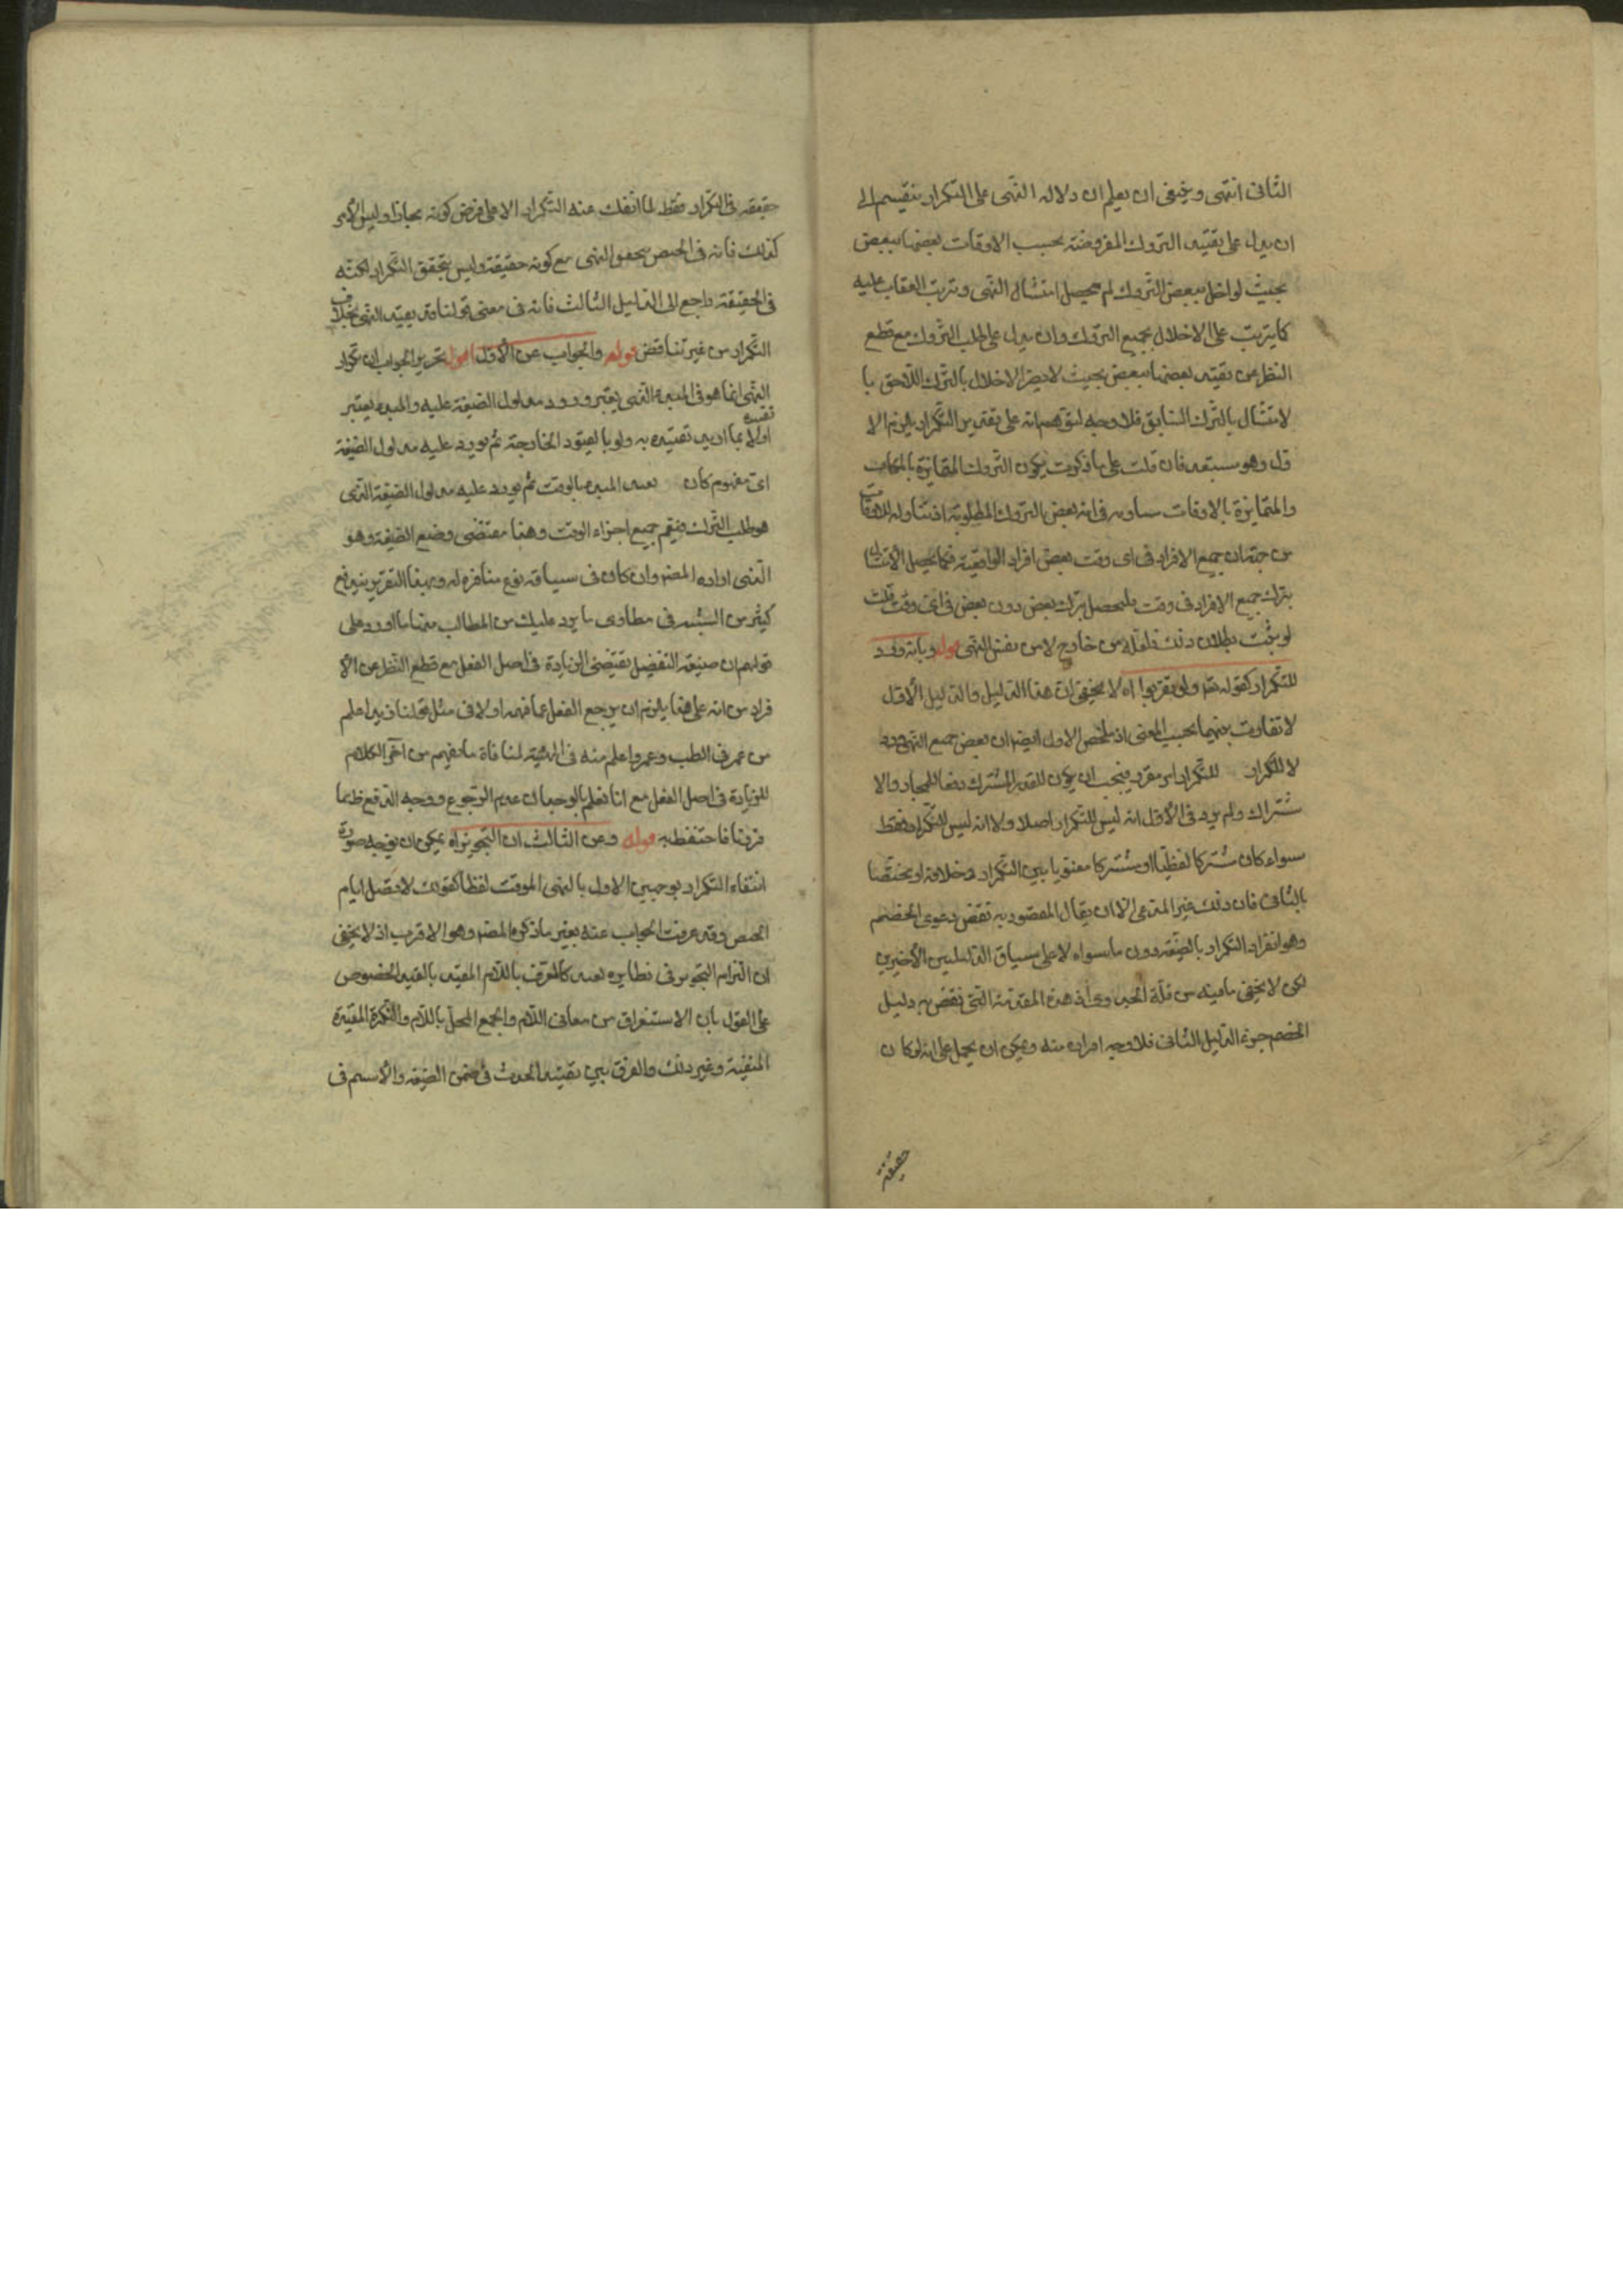 الثانى انتهى وينبغى ان يعلم ان دلاله النهى على التكرار ينقسم الى
ان يدل على تقييد التروك المفروضة بحسب الاوقات بعضها ببعض
بحيث لو اخل ببعض التروك لم يحصل امتثال النهى وترتب العقاب عليه
كما يترتب على الاخلال بجميع التروك وان يدل على طلب التروك مع قطع
النظر عن تقييد بعضها ببعض بحيث لا يضر الاخلال بالترك اللاحق با
لامتثال بالترك السابق فلا وجه لتوهم انه على تقدير التكرار يلزم الا
ول وهو مستبعد فان قلت على ما ذكرت يكون التروك المتمايزة بالمكان
والمتمايزة بالاوقات متساوية فى انه بعض التروك المطلوبة اذ تناوله للاوقات
من جهة ان جميع الافراد فى اى وقت بعض افراد الواقعية فكما يحصل الامتثال
بترك جميع الافراد فى وقت فليحصل بترك بعض دون بعض فى اى وقت قلت
لو ثبت بطلان ذلك فلعله من خارج لا من نفس النهى قوله وبانه ورد
للتكرار كقوله تعه ولا تقربوا اه لا يخفى ان هذا الدليل والدليل الأول
لا تفاوت بينهما بحسب المعنى اذ ملخص الاول ايضا ان بعض جميع النهى ورد
لا للتكرار للتكرار امر مقرر فيجب ان يكون للقدر المشترك دفعا للمجاز والا
شتراك ولم يرد فى الأول انه ليس للتكرار اصلا ولا انه ليس للتكرار فقط
سواء كان مشتركا لفظيا او مشتركا معنويا بين التكرار وخلافه او مختصا
بالثانى فان ذلك غير المدعى الا ان يقال المقصود به نقض دعوى الخصم
وهو انفراد التكرار بالصيغة دون ما سواه لا على سياق الدليلين الأخيرين
لكن لا يخفى ما فيه من قلة الجدوى اذ هذه المقدمة التى نقض به دليل
الخصم جزء الدليل الثانى فلا وجه افراده منه ويمكن ان يحمل على انه لو كان
حقيقة
حقيقة فى التكرار فقط لما انفك عنه التكرار الا على فرض كونه مجازا وليس الأمر
كذلك فانه فى الحيض يتحقق النهى مع كونه حقيقة وليس يتحقق التكرار لكنه
فى الحقيقة راجع الى الدليل الثالث فانه فى معنى قولنا قد يقيد النهى بخلاف
التكرار من غير تناقض قوله والجواب عن الأول اقول تحرير الجواب ان تكرار
النهى انما هو فى المبدء النهى يعتبر ورود مدلول الصيغة عليه والمبدء يعتبر
تقييده
اولا بما اريد تقييده به ولو بالقيود الخارجة ثم يورد عليه مدلول الصيغة
اى مفهوم كان تقييد المبدء بالوقت ثم يورد عليه مدلول الصيغة النهى
هو طلب الترك فيعم جميع اجزاء الوقت وهذا مقتضى وضع الصيغة وهو
الذى اراده المصه وان كان فى سياقه نوع منافرة له وبهذا التقرير يندفع
كثير من الشبه فى مطاوى ما يرد عليك من المطالب منها ما اورد على
قولهم ان صيغة التفضيل تقتضى الزيادة فى اصل الفعل مع قطع النظر عن الأ
فراد من انه على هذا يلزم ان يرجع الفعل عما فهمه اولا فى مثل قولنا زيد اعلم
من عمر فى الطب وعمرو اعلم منه فى الهيئة لمنافاة ما يفهم من آخر الكلام
للزيادة فى اصل الفعل مع انا نعلم بالوجدان عدم الرجوع ووجه الدفع ظ مما
قررنا فاحتفظ به قوله وعن الثالث ان التجوز اه يمكن ان يوجه صورة
انتفاء التكرار بوجهين الاول بالنهى الموقت لفظا كقولك لا تصل ايام
الحيض وقد عرفت الجواب عنه بغير ما ذكره المصه وهو الاقرب اذ لا يخفى
ان التزام التجوز فى نظايره بعيد كالمعرف باللام المقيد بالقيد الخصوص
على القول بان الاستغراق من معانى اللام والجمع المحلى باللام والنكرة المقيدة
المنفية وغير ذلك والفرق بين تقييد الحدث فى ضمن الصيغة والأسم فى